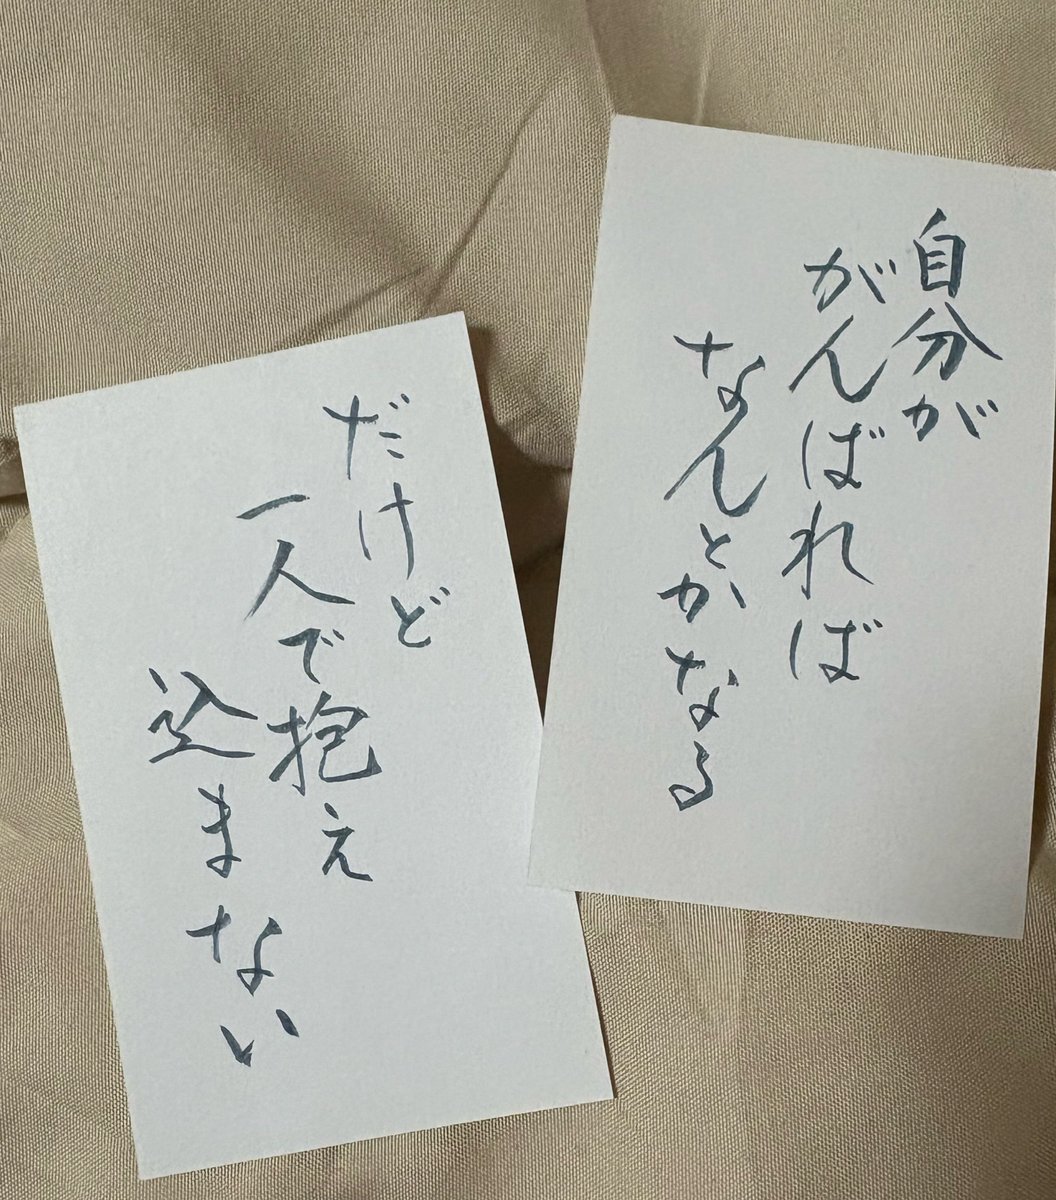 自分が
がんばれば
なんとかなる
だけど
一人で抱え
込まない